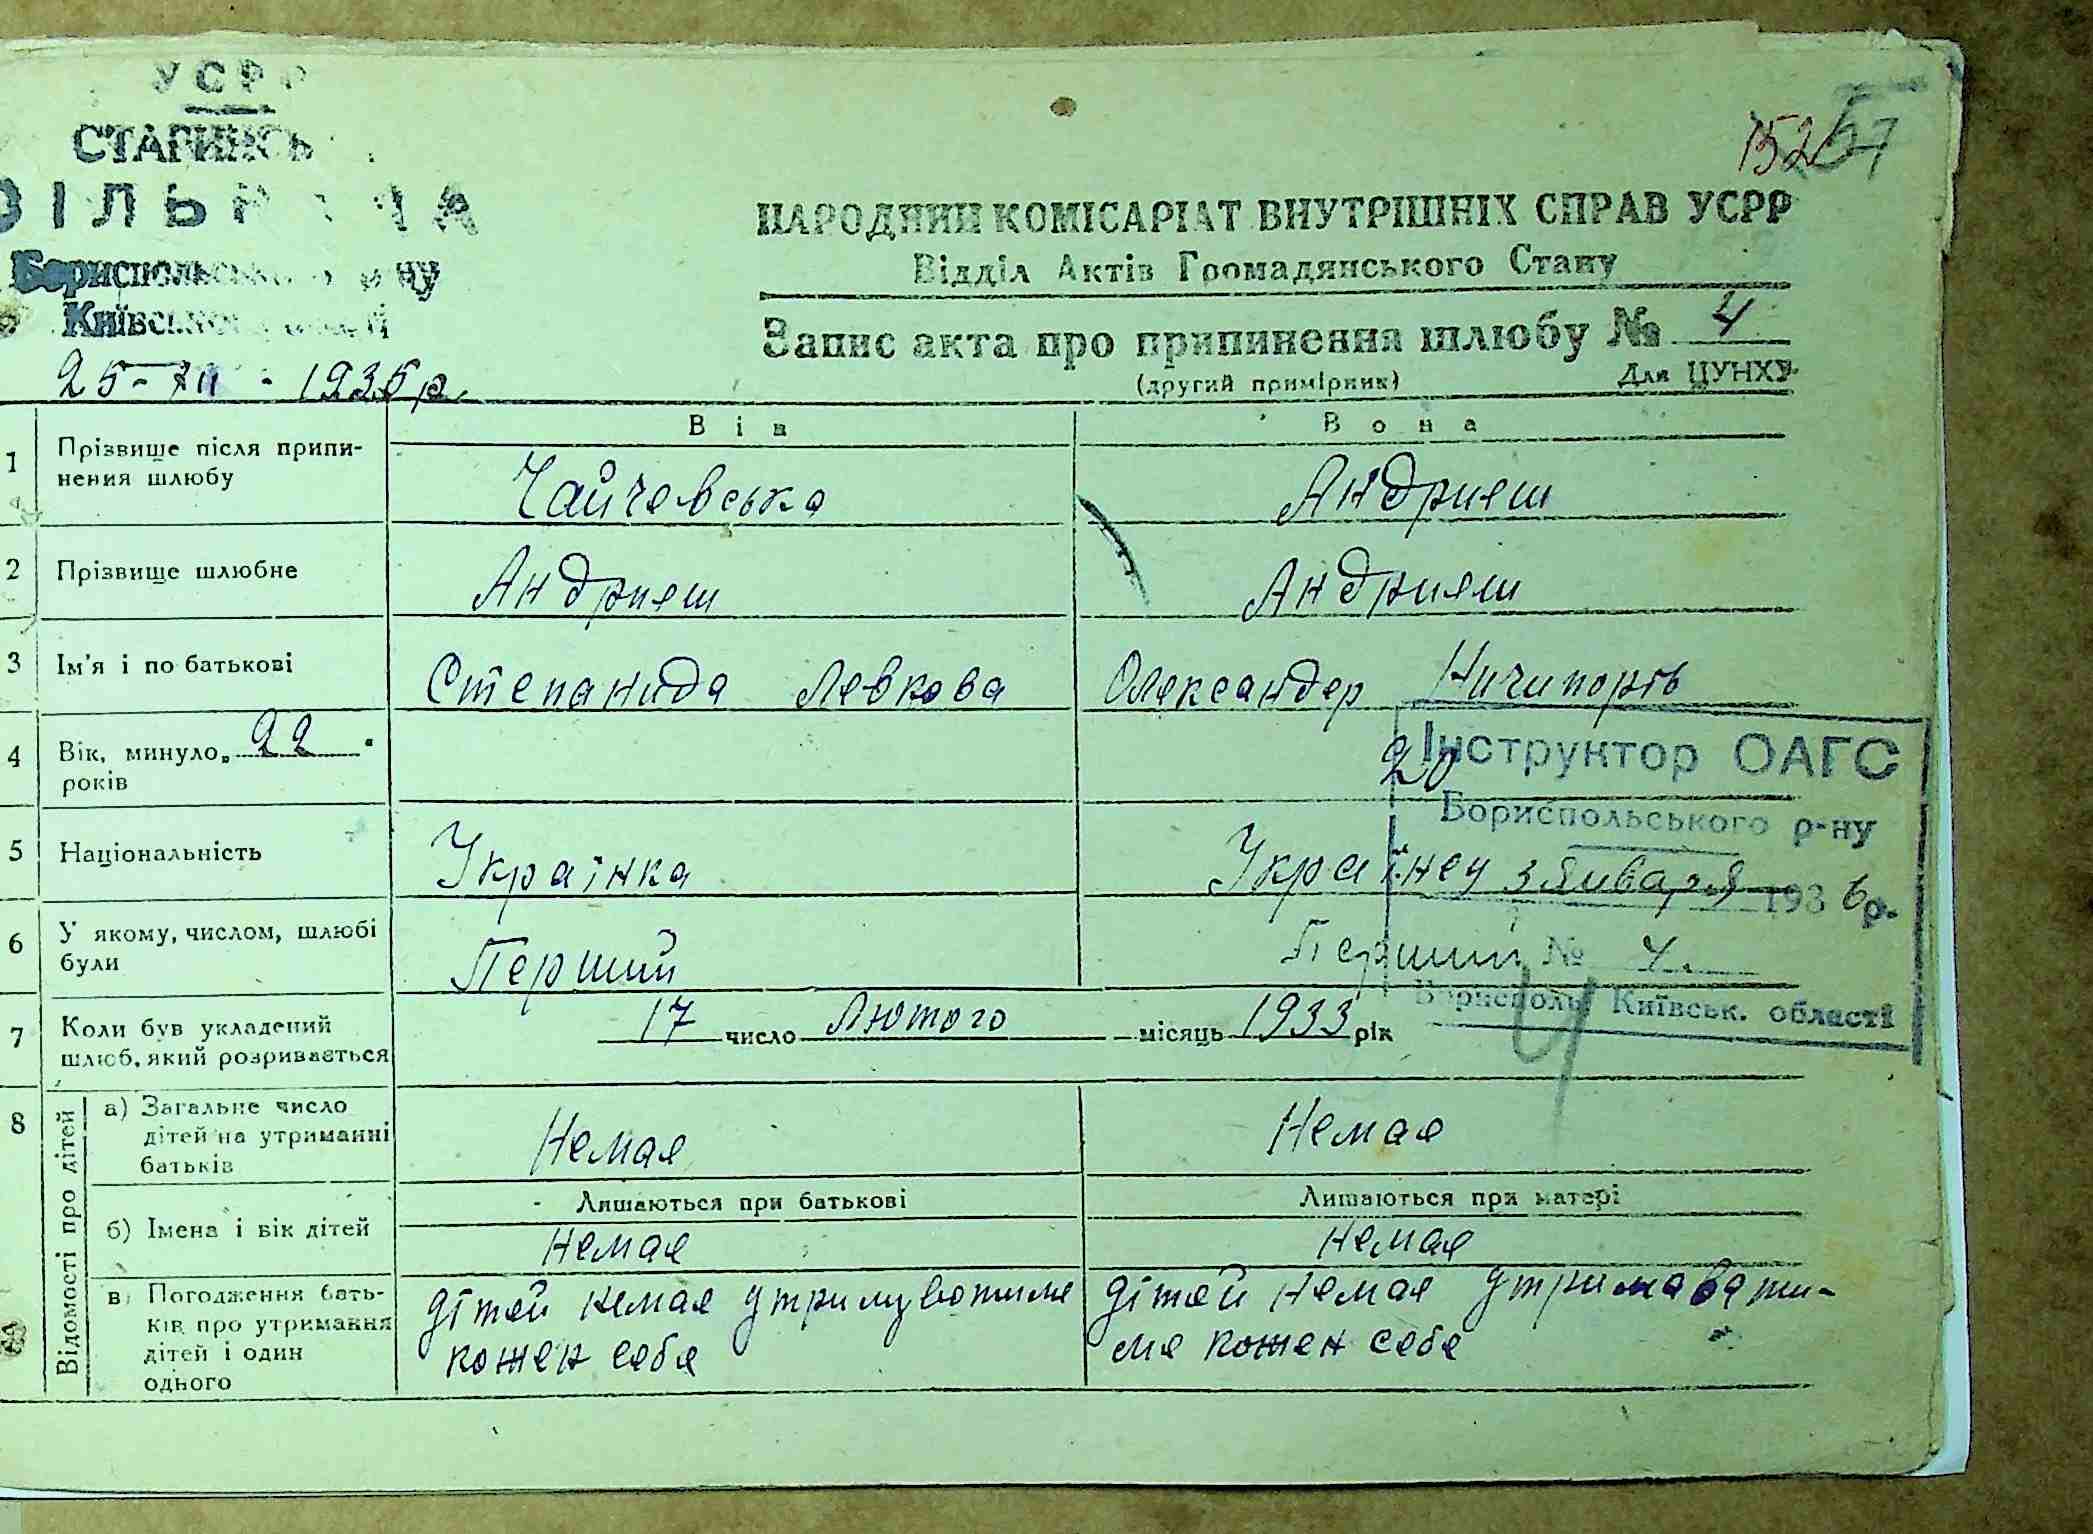 УСРР
152
НАРОДНИЙ КОМІСАРІАТ ВНУТРІШНІХ СПРАВ УСРР
Відділ Актів Громадянського Стану
Запис акта про припинення шлюбу № 4
(другий примірник) Для ЦУНХУ
Бориспольськ ну
Київськ
25-XII-1935 р.
Він Вона
1 Прізвище після припи-
нення шлюбу
Чайчевська Андрияш
2 Прізвище шлюбне Андрияш Андрияш
3 Ім'я і по батькові Степанида Левкова Олександер Ничипорів
4 Вік, минуло 22
років
20
5 Національність Українка Українец
6 У якому, числом, шлюбі
були
Перший Перший
7 Коли був укладений
шлюб, який розривається
17 число Лютого місяць 1933 рік
Інструктор ОАГС
Бориспольського р-ну
3 Января 1936 р.
№ 4.
Бориспол. Київськ. області
8 Відомості про дітей
а) Загальне число
дітей на утриманні
батьків
Немая Немая
Лишаються при батькові Лишаються при матері
б) Імена і вік дітей Немая Немая
в) Погодження бать-
ків про утримання
дітей і один
одного
дітей немая утримуватиме
кожен себя
дітей немая утримавати-
ме кожен себе